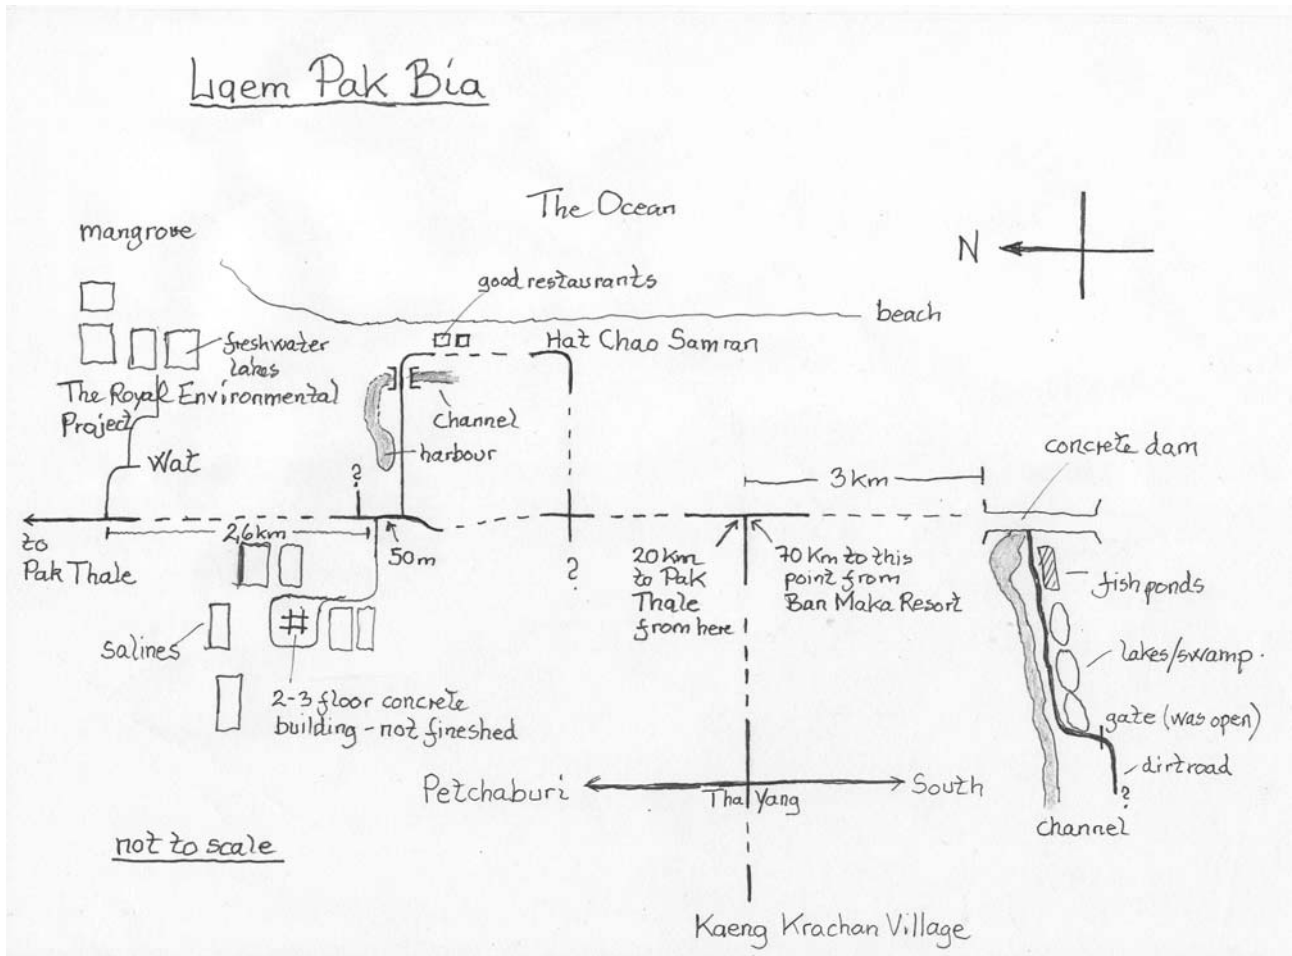 Laem Pak Bia
The Ocean
mangrove
N
good restaurants
beach
freshwater
lakes
Hat Chao Samran
The Royal Environmental
Project
channel
harbour
Wat
concrete dam
3 km
?
2,6 km
50 m
to
Pak Thale
?
20 Km
to Pak
Thale
from here
70 Km to this
point from
Ban Maka Resort
fish ponds
salines
lakes/swamp.
2-3 floor concrete
building - not fineshed
gate (was open)
dirtroad
Petchaburi
Tha Yang
South
?
channel
not to scale
Kaeng Krachan Village